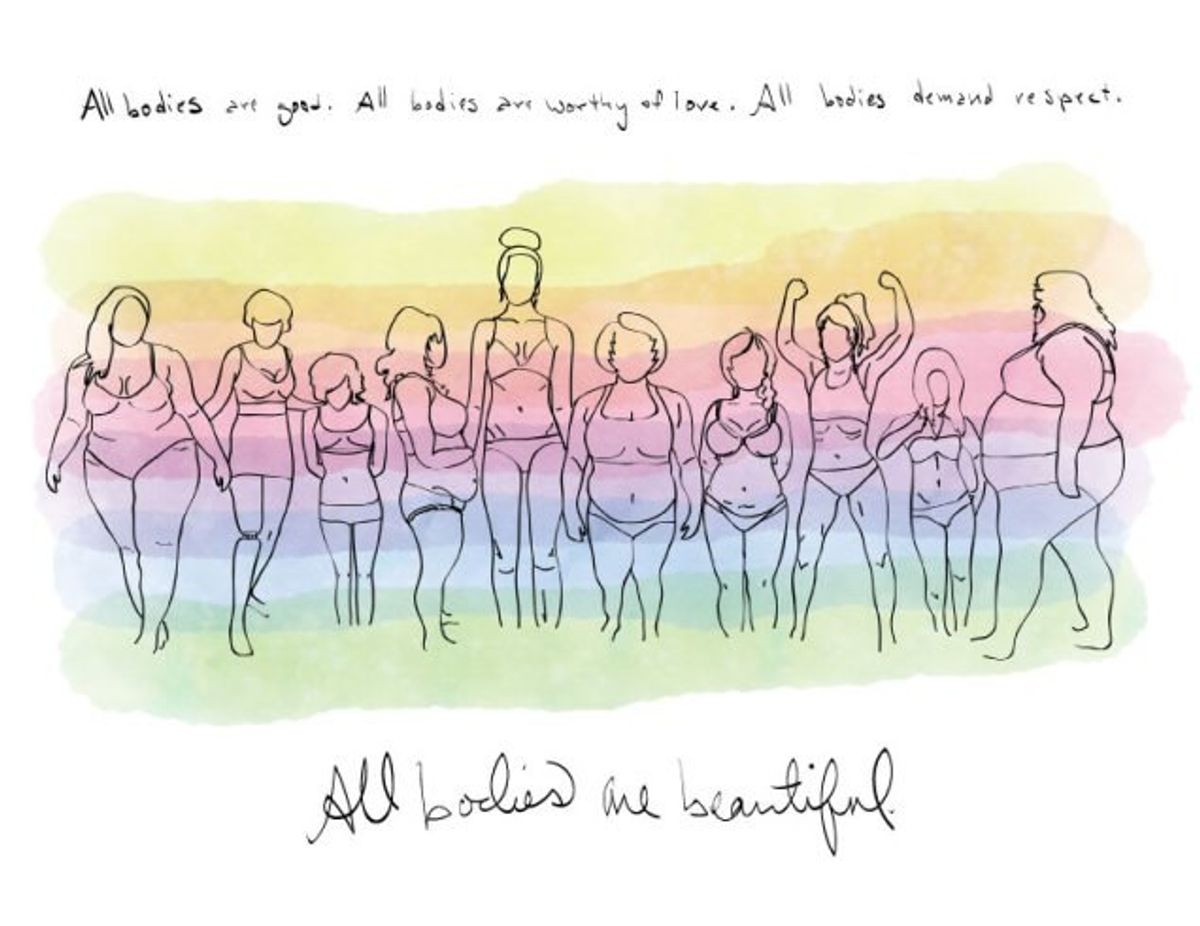 All bodies are good. All bodies are worthy of love. All bodies demand respect.
All bodies are beautiful.